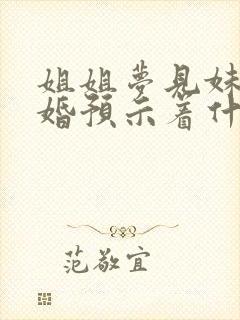 姐姐梦见妹
婚预示着什
范敬宜